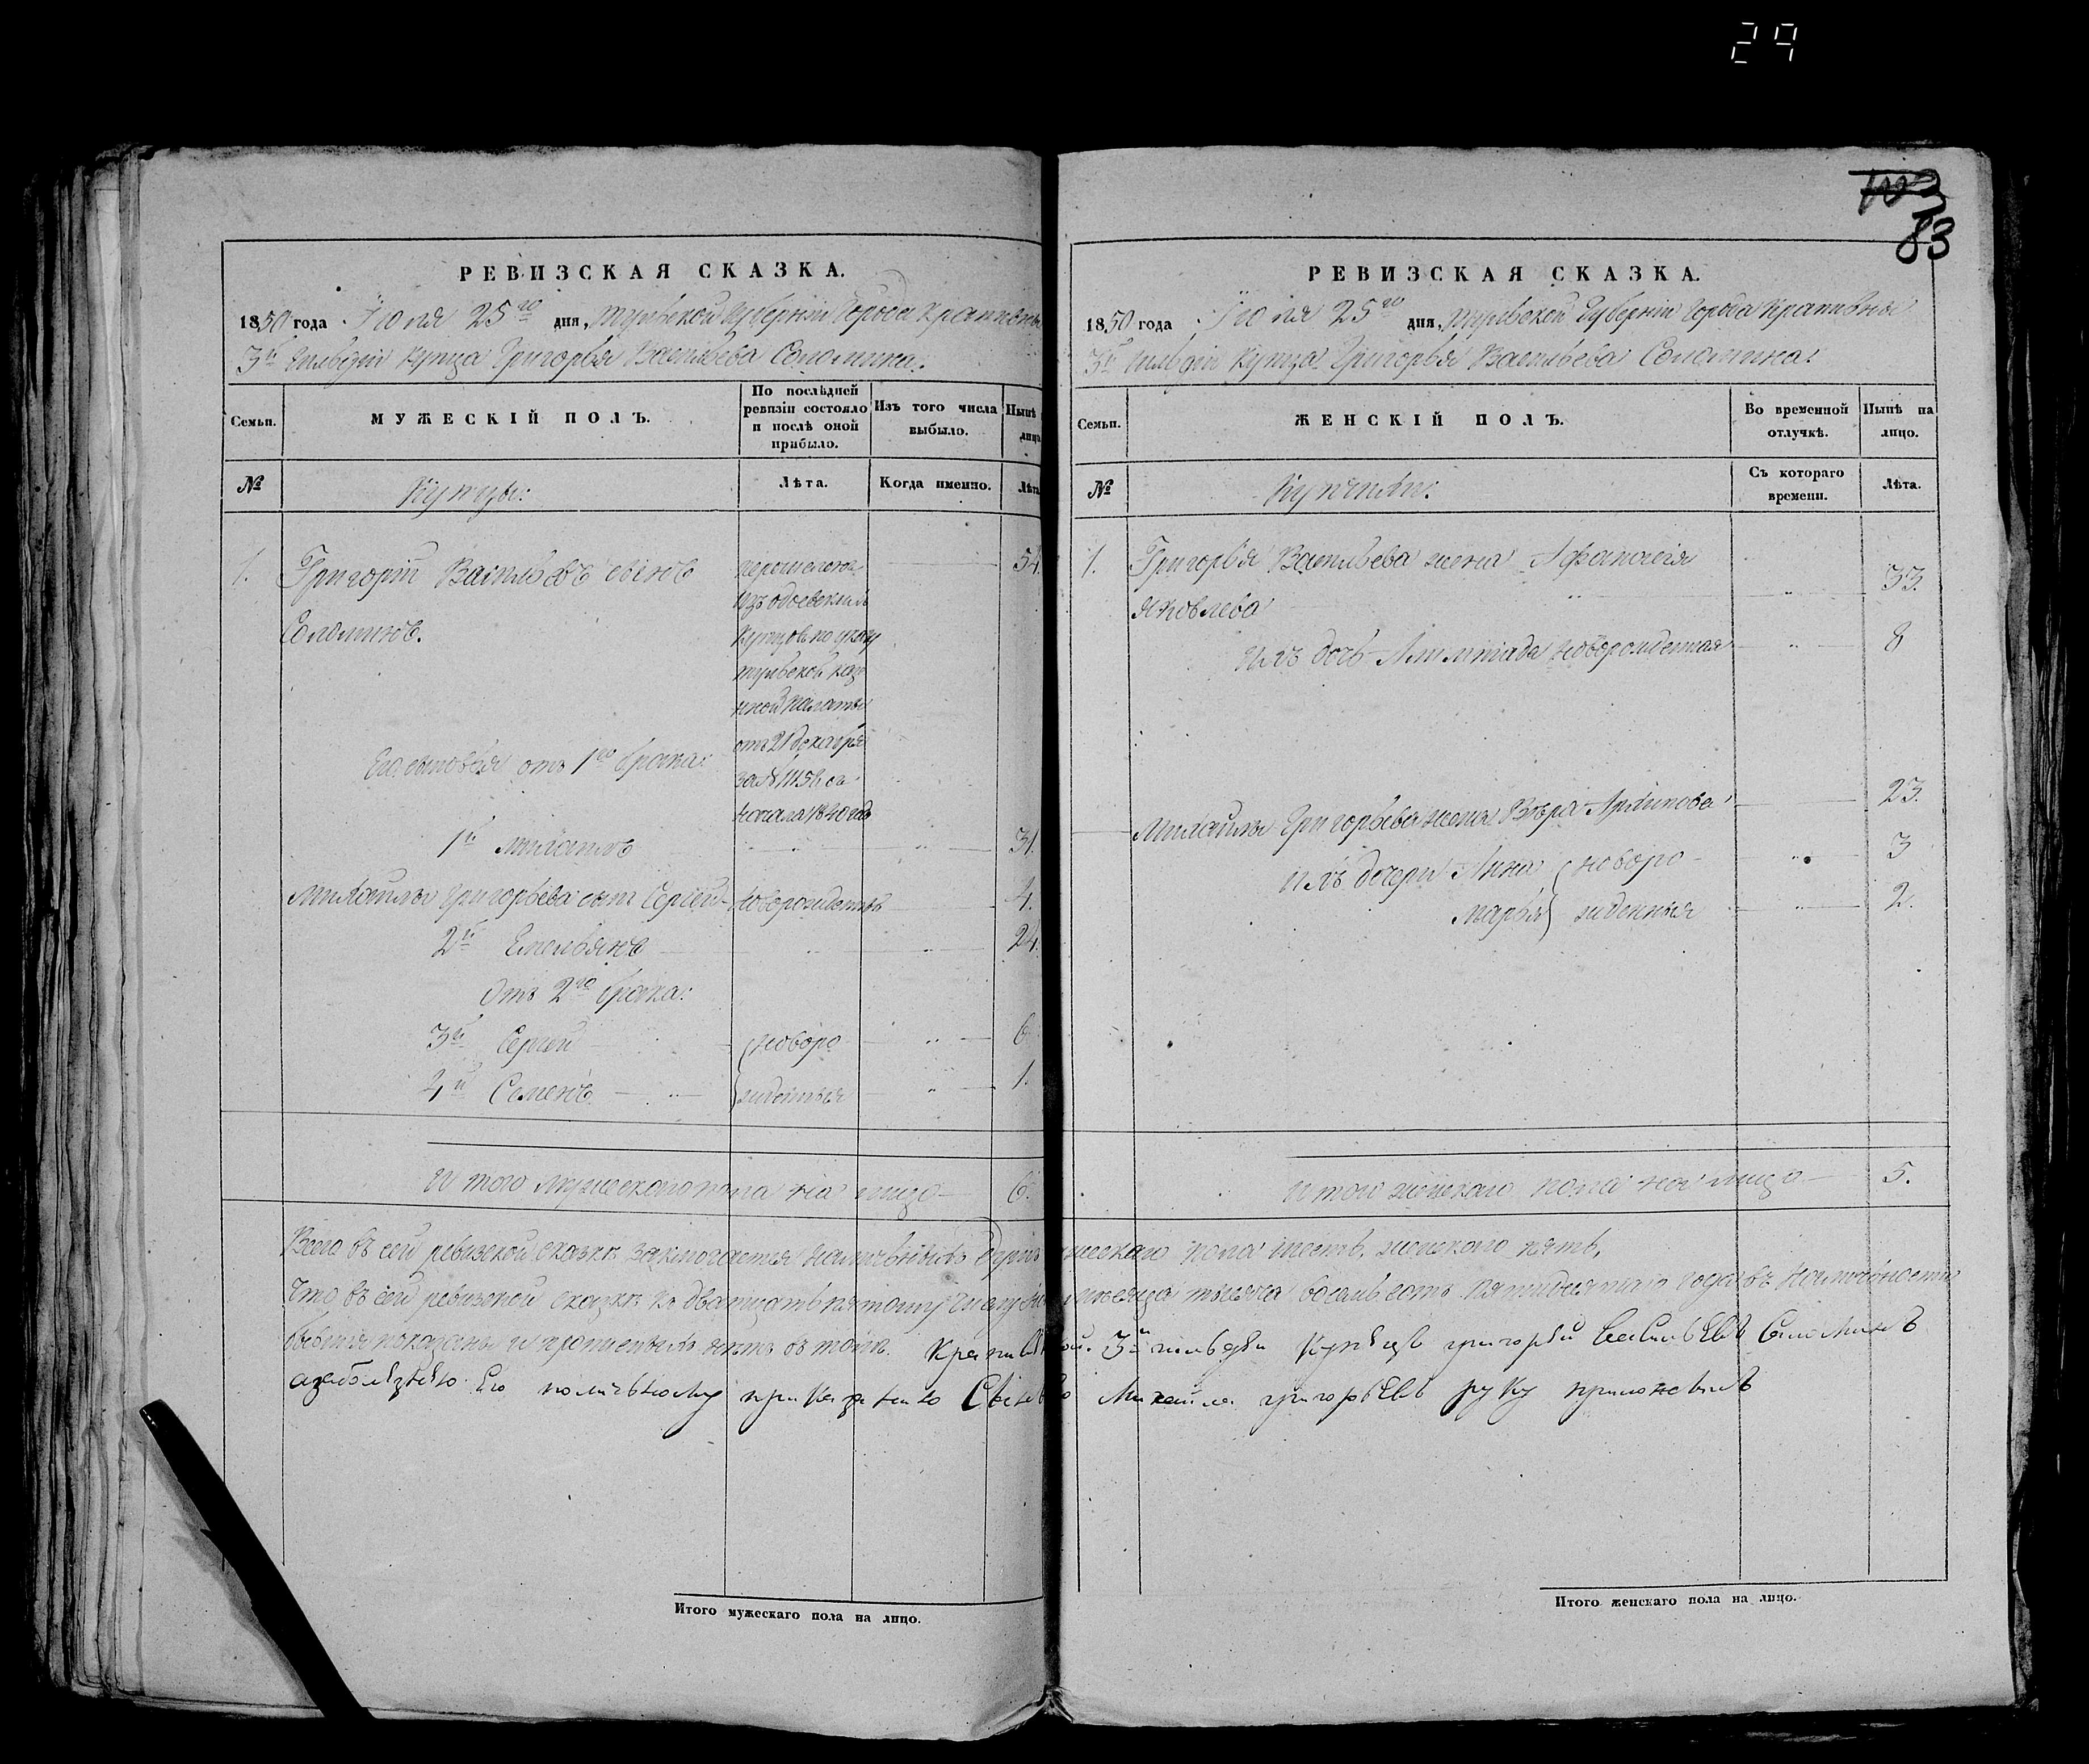 29
103
83
РЕВИЗСКАЯ СКАЗКА.
1850 года Іюля 25го дня, Тульской Губерніи Города Крапивны
3й Гильдіи Купца Григорья Васильева Соломина.
Семьи.
МУЖЕСКІЙ ПОЛЪ.
По послѣдней ревизіи состояло и послѣ оной прибыло.
Изъ того числа выбыло.
Нынѣ лицо
№
Купцы:
Лѣта.
Когда именно.
Лѣта
1. Григорій Васильевъ сынъ 54.
Соломинъ.
перешелъ
изъ одоевскихъ
Купцовъ по указу
тульской казен
ной Палаты
отъ 21 декабря
за № 11158 съ
начала 1840 года
Его сыновья отъ 1го брака:
1й Михаилъ 31.
Михайлы Григорьева сынъ Сергей новорожденъ 4.
2й Емельянъ 24.
Отъ 2го брака:
3й Сергей новоро 6
4й Семенъ жденныя 1.
И того мужескаго пола на лицо 6.
РЕВИЗСКАЯ СКАЗКА.
1850 года Іюля 25го дня, Тульской Губерніи Города Крапивны
3й Гильдіи Купца Григорья Васильева Соломина:
Семьи.
ЖЕНСКІЙ ПОЛЪ.
Во временной отлучкѣ.
Нынѣ на лицо.
№
Купчихи:
Съ котораго времени.
Лѣта.
1. Григорья Васильева жена Афанасія
Яковлева 33.
Ихъ дочь новорожденная 8
Михайлы Григорьева жена Вѣра Архипова 23.
Ихъ дочери Анна новоро 3
Марья жденныя 2.
И того женскаго пола на лицо 5.
Всего въ сей ревизской сказкѣ заключается наличныхъ душъ мужескаго пола шесть, женскаго пять,
Что въ сей ревизской сказкѣ къ двадцать пятому числу Іюля мѣсяца тысяча восемьсотъ пятидесятаго года въ наличности
показаны и нѣтъ въ томъ. Крапивенской 3й гильдіи Купецъ григорьй Васильевъ Соломинъ
Его по личьному приказанію Сынъ Михайла григорьевъ руку приложилъ
Итого мужескаго пола на лицо.
Итого женскаго пола на лицо.